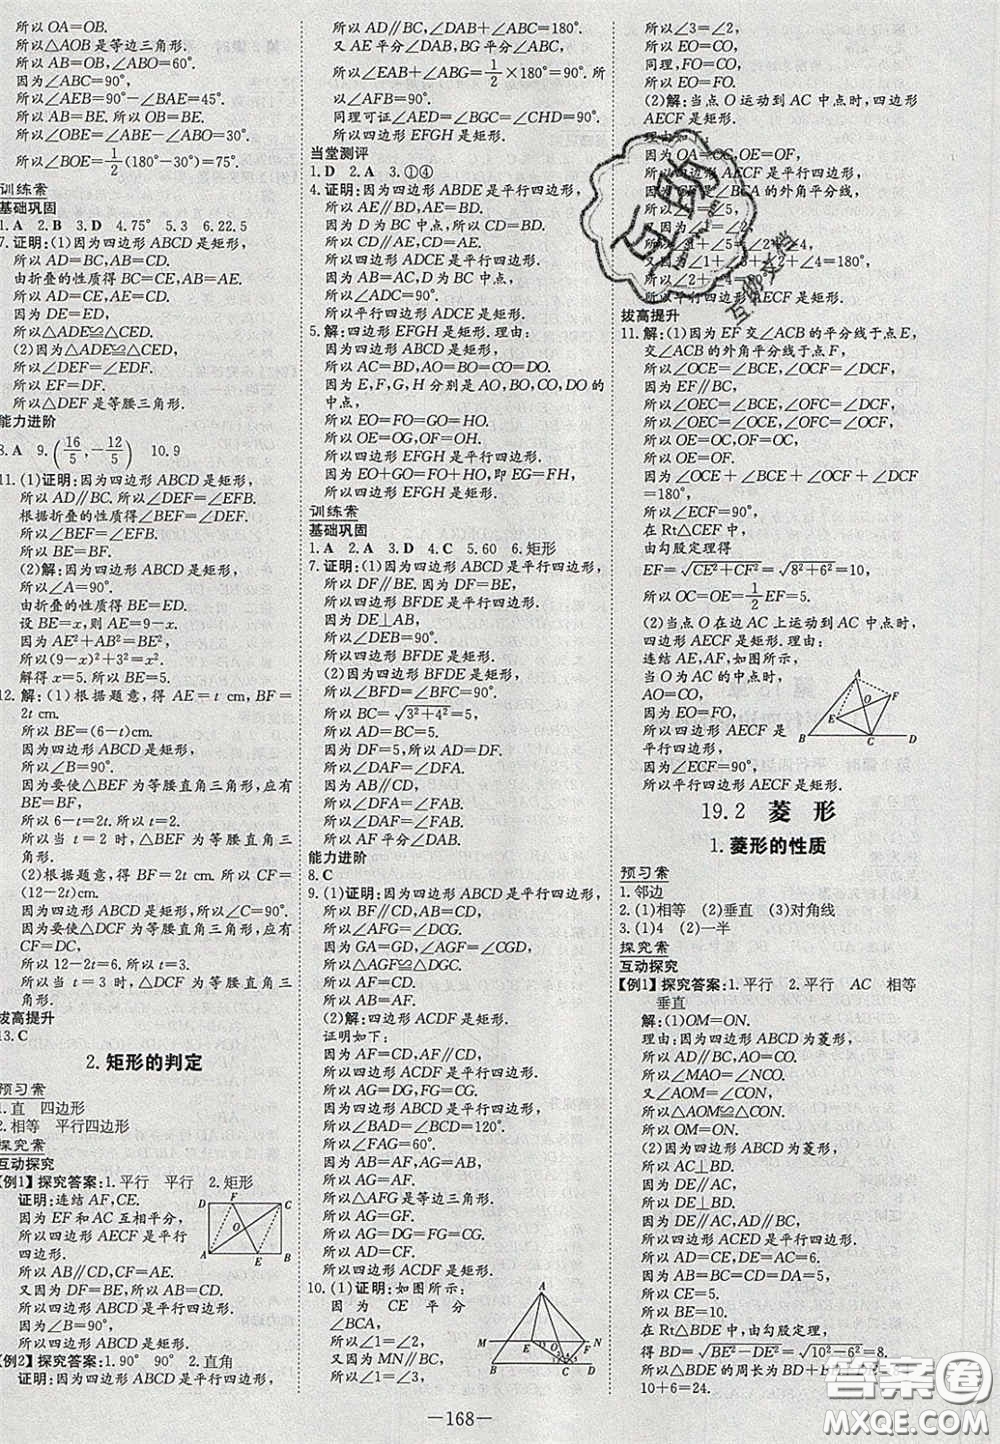 所以 OA=OB.
所以△AOB是等边三角形.
所以 AB=OB,∠ABO=60°.
因为∠ABC=90°,
所以∠AEB=90°-∠BAE=45°.
所以 AB=BE. 所以 OB=BE.
所以∠OBE=∠ABE-∠ABO=30°.
所以∠BOE=1/2(180°-30°)=75°.
训练案
基础巩固
1.A 2.B 3.D 4.75° 5.3 6.22.5
7.证明:(1)因为四边形ABCD是矩形,
所以 AD=BC,AB=CD.
由折叠的性质得 BC=CE,AB=AE.
所以 AD=CE,AE=CD.
因为 DE=ED,
所以△ADE≌△CED.
(2)因为△ADE≌△CED,
所以∠EDF=∠DEF.
所以 EF=DF.
所以△DEF是等腰三角形.
能力进阶
8.A 9.(16/5,-12/5) 10.9
11.(1)证明:因为四边形ABCD是矩形,
所以 AD∥BC. 所以∠DEF=∠EFB.
根据折叠的性质得∠BEF=∠DEF.
所以∠BEF=∠EFB.
所以 BE=BF.
(2)解:因为四边形ABCD是矩形,
所以∠A=90°.
由折叠的性质得 BE=ED.
设 BE=x,则 AE=9-x.
因为 AE²+AB²=BE²,
所以(9-x)²+3²=x².
解得 x=5. 所以 BE=5.
12.解:(1)根据题意,得 AE=t cm,BF=
2t cm.
所以 BE=(6-t)cm.
因为四边形ABCD是矩形,
所以∠B=90°.
因为要使△BEF为等腰直角三角形,
所以 BE=BF.
所以 6-t=2t. 所以 t=2.
所以当 t=2 时,△BEF为等腰直角三
角形.
(2)根据题意,得 BF=2t cm. 所以 CF=
(12-2t)cm.
因为四边形ABCD是矩形,所以∠C=90°.
因为要使△DCF为等腰直角三角形,应有
CF=DC,
所以 12-2t=6. 所以 t=3.
所以当 t=3 时,△DCF为等腰直角三
角形.
拔高提升
13.C
2.矩形的判定
预习案
1.直 四边形
2.相等 平行四边形
探究案
互动探究
【例1】探究答案:1.平行 平行 2.矩形
证明:连结 AF,CE.
因为 EF 和 AC 互相平分,
所以四边形AECF是平行
四边形.
所以 AB∥CD,CF=AE.
又因为 DF=BE,所以 AB=CD.
所以四边形ABCD是平行四边形.
因为∠B=90°,
所以四边形ABCD是矩形.
【例2】探究答案:1.90° 90° 2.直角
证明:因为四边形ABCD是平行四边形,
D F C
O
A E B
所以 AD∥BC,∠DAB+∠ABC=180°.
又 AE平分∠DAB,BG平分∠ABC,
所以∠EAB+∠ABG=1/2×180°=90°. 所
以∠AFB=90°.
同理可证∠AED=∠BGC=∠CHD=90°.
所以四边形EFGH是矩形.
当堂测评
1.D 2.A 3.①④
4.证明:因为四边形ABDE是平行四边形,
所以 AE∥BD,AE=BD.
因为 D 为 BC 中点,所以 CD=BD.
所以 CD∥AE,CD=AE.
所以四边形ADCE是平行四边形.
因为 AB=AC,D 为 BC 中点,
所以∠ADC=90°.
所以平行四边形ADCE是矩形.
5.解:四边形EFGH是矩形.理由:
因为四边形ABCD是矩形,
所以 AC=BD,AO=BO=CO=DO.
因为 E,F,G,H 分别是 AO,BO,CO,DO的
中点,
所以 EO=FO=GO=HO.
所以 OE=OG,OF=OH.
所以四边形EFGH是平行四边形.
因为 EO+GO=FO+HO,即 EG=FH,
所以四边形EFGH是矩形.
训练案
基础巩固
1.A 2.A 3.D 4.C 5.60 6.矩形
7.证明:(1)因为四边形ABCD是平行四边形,
所以 DF∥BE. 因为 DF=BE,
所以四边形BFDE是平行四边形.
因为 DE⊥AB,
所以∠DEB=90°.
所以四边形BFDE是矩形.
(2)因为四边形BFDE是矩形,
所以∠BFD=∠BFC=90°.
所以 BC=√(3²+4²)=5.
所以 AD=BC=5.
因为 DF=5,所以 AD=DF.
所以∠DAF=∠DFA.
因为 AB∥CD,
所以∠DFA=∠FAB.
所以∠DAF=∠FAB.
所以 AF平分∠DAB.
能力进阶
8.C
9.(1)证明:因为四边形ABCD是平行四边形,
所以 BF∥CD,AB=CD.
所以∠AFG=∠DCG.
因为 GA=GD,∠AGF=∠CGD,
所以△AGF≌△DGC.
所以 AF=CD. 所以 AB=AF.
(2)解:四边形ACDF是矩形.
证明如下:
因为 AF=CD,AF∥CD,
所以四边形ACDF是平行四边形.
所以 AG=DG,FG=CG.
因为四边形ABCD是平行四边形,
所以∠BAD=∠BCD=120°.
所以∠FAG=60°.
因为 AB=AF,AB=AG,
所以 AF=AG.
所以△AFG是等边三角形.
所以 AG=GF.
所以 AD=CF.
所以四边形ACDF是矩形.
10.(1)证明:如图所示:
因为 CE 平分
∠BCA,
所以∠1=∠2,
又因为 MN∥BC,
A
M E O F N
B C
所以∠1=∠3. 所以∠3=∠2.
所以 EO=CO.
同理,FO=CO.
所以 EO=FO.
(2)解:当点O运动到AC中点时,四边形
AECF是矩形.
理由:
因为 OA=OC,OE=OF,
所以四边形AECF是平行四边形.
因为 CF是∠BCA的外角平分线,
所以∠4=∠5,
所以∠1=∠2.
所以∠1+∠5=∠2+∠4.
又∠1+∠5+∠2+∠4=180°,
所以∠2+∠4=90°.
所以平行四边形AECF是矩形.
拔高提升
11.解:(1)因为 EF交∠ACB的平分线于点E,
交∠ACB的外角平分线于点F,
所以∠OCE=∠BCE,∠OCF=∠DCF.
因为 EF∥BC,
所以∠OEC=∠BCE,∠OFC=∠DCF.
所以∠OEC=∠OCE,∠OFC=∠OCF.
所以 OE=OC,OF=OC.
所以 OE=OF.
因为∠OCE+∠BCE+∠OCF+∠DCF
=180°,
所以∠ECF=90°.
在 Rt△CEF 中,
由勾股定理得
EF=√(CE²+CF²)=√(8²+6²)=10,
所以 OC=OE=1/2EF=5.
(2)当点O在边AC上运动到AC中点时,
四边形AECF是矩形.理由:
连结 AE,AF,如图所示,
当 O 为 AC 的中点时,
AO=CO,
因为 EO=FO,
所以四边形AECF是
平行四边形.
因为∠ECF=90°,
所以平行四边形AECF是矩形.
A
O F
E
B C D
19.2 菱 形
1.菱形的性质
预习案
1.邻边
2.(1)相等 (2)垂直 (3)对角线
3.(1)4 (2)一半
探究案
互动探究
【例1】探究答案:1.平行 2.平行 AC 相等
垂直
解:(1)OM=ON.
理由:因为四边形ABCD为菱形,
所以 AD∥BC,AO=OC.
所以∠MAO=∠NCO.
因为∠AOM=∠CON,
所以△AOM≌△CON.
所以 OM=ON.
(2)因为四边形ABCD为菱形,
所以 AC⊥BD.
因为 DE∥AC,
所以 DE⊥BD.
因为 AD=BC,AD∥BC,
所以四边形ACED是平行四边形.
所以 AD=CE,DE=AC=6.
因为 AB=AD=5,
所以 CE=5.
所以 BE=10.
在 Rt△BDE 中,由勾股定理,
得 BD=√(BE²-DE²)=√(10²-6²)=8.
所以△BDE的周长为 BD+BE+DE=8+
10+6=24.
—168—
答案圈
MXQE.COM